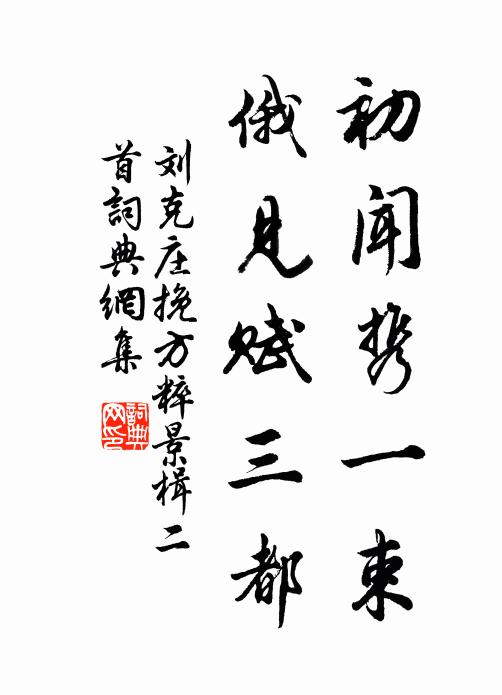 初闻携一束
俄见赋三都
刘克庄挽方粹景楫二
首詞典網集
詞典网印